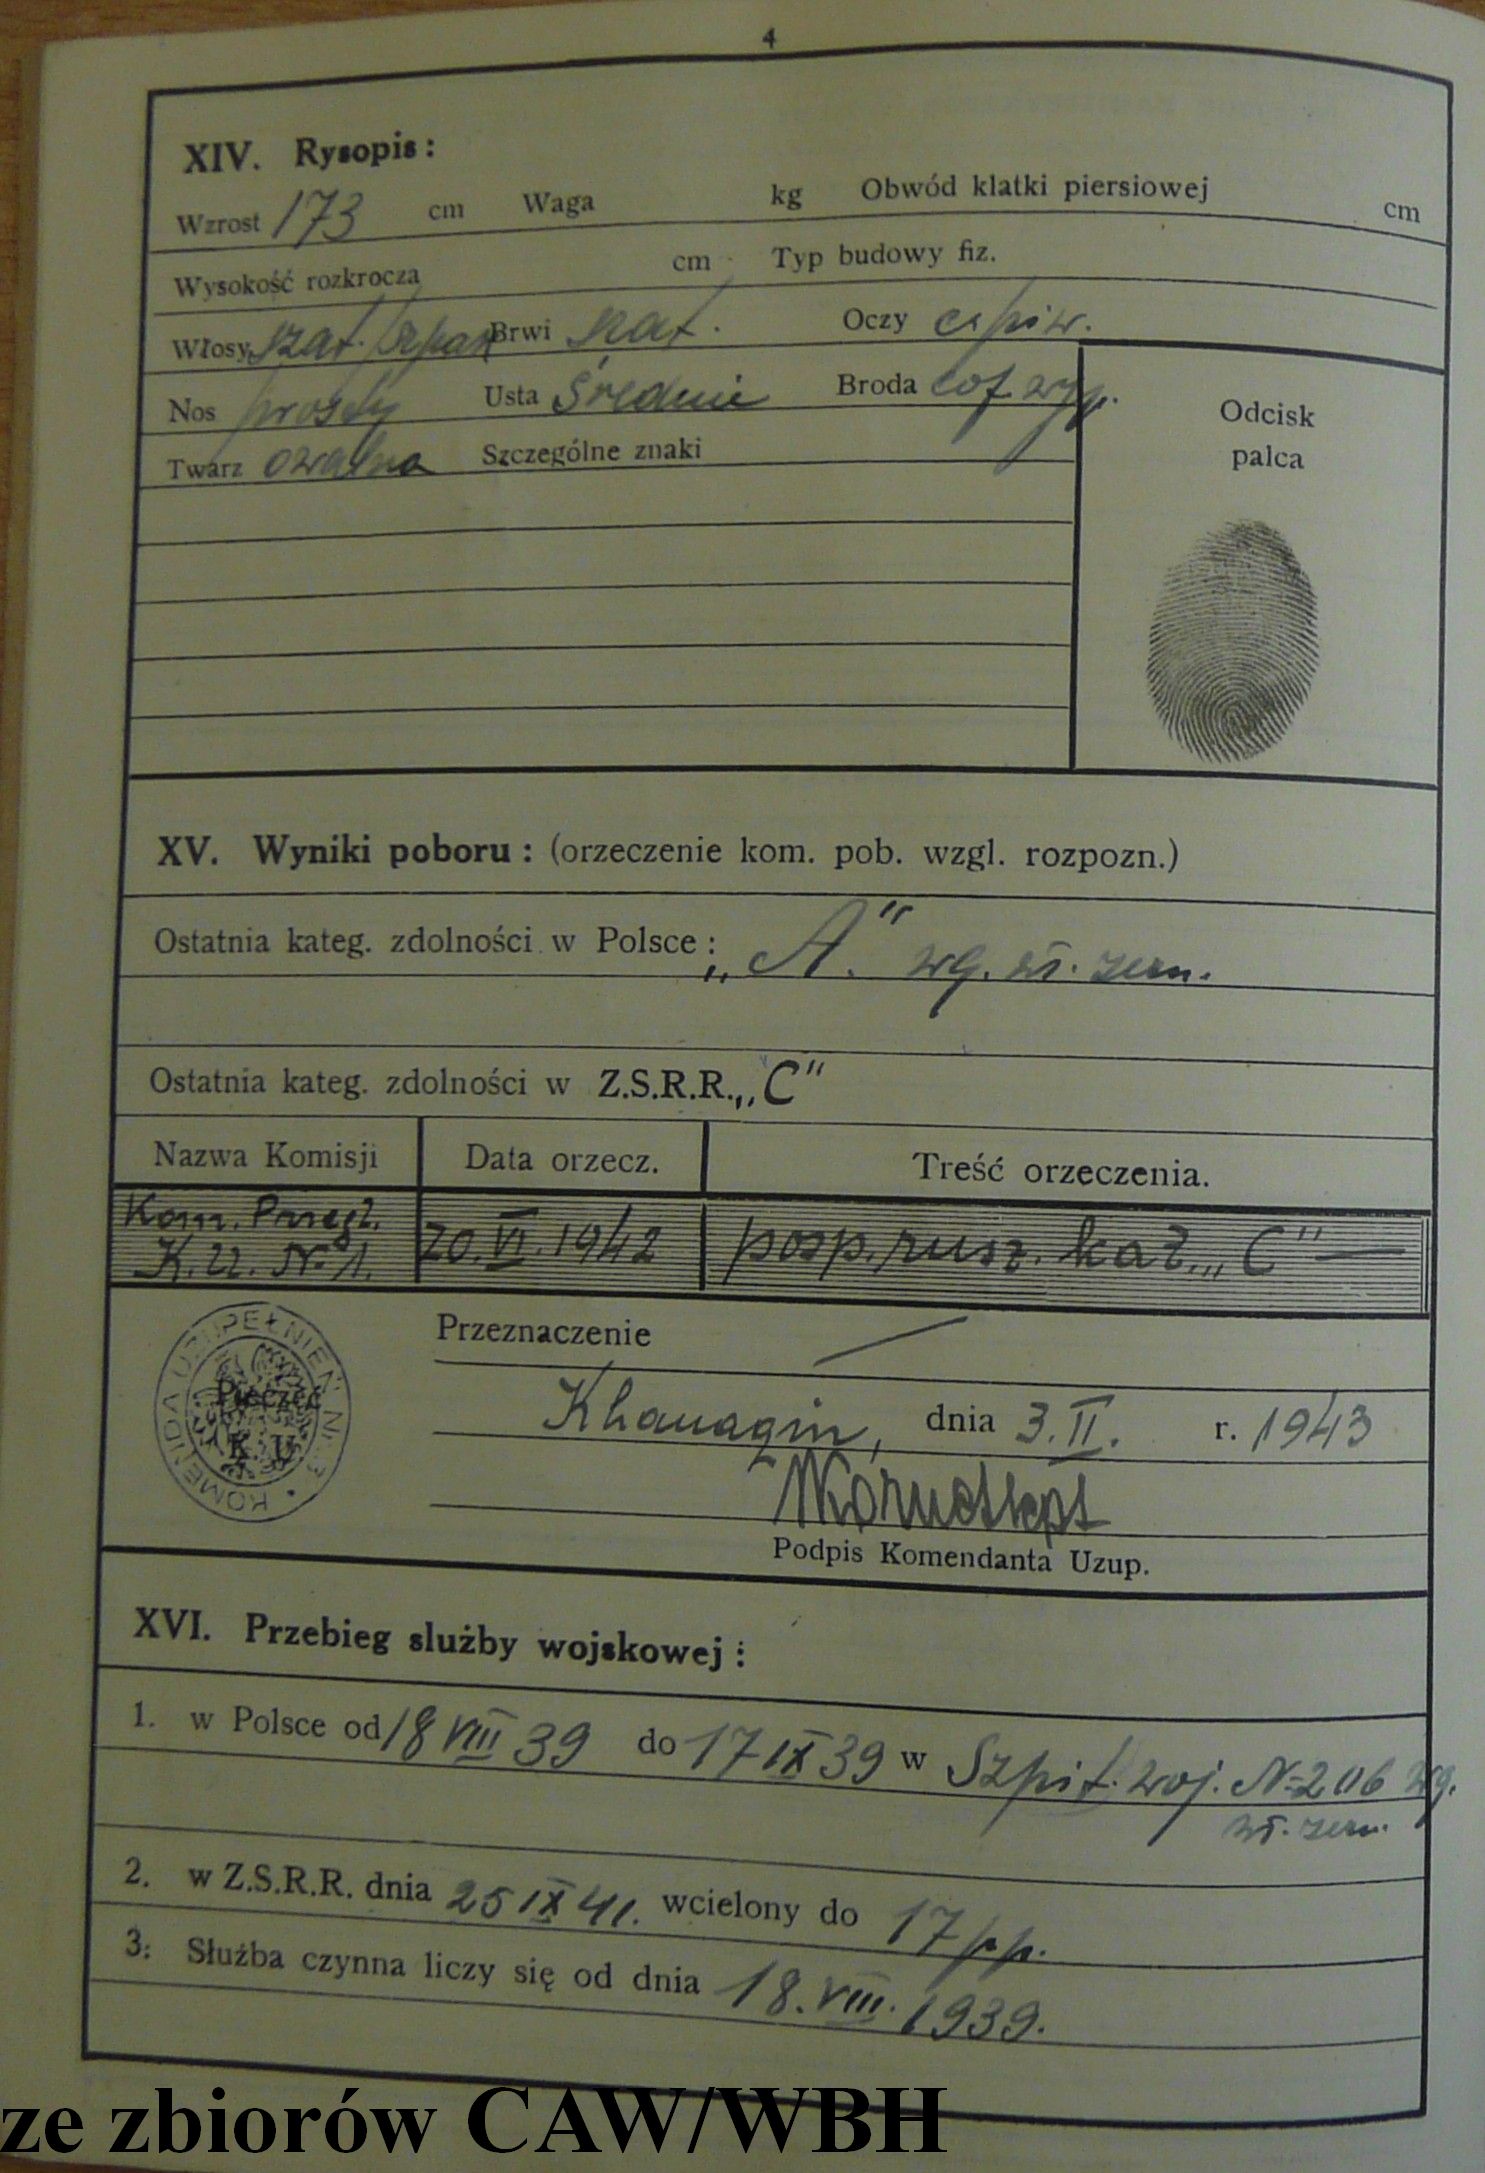 4
XIV. Rysopis:
Wzrost 173 cm Waga kg Obwód klatki piersiowej cm
Wysokość rozkrocza cm Typ budowy fiz.
Włosy szat. Brwi szat. Oczy c. piw.
Nos prosty Usta średnie Broda cof.
Twarz owalna Szczególne znaki
Odcisk
palca
XV. Wyniki poboru: (orzeczenie kom. pob. wzgl. rozpozn.)
Ostatnia kateg. zdolności w Polsce: „A." wg. wł. zezn.
Ostatnia kateg. zdolności w Z.S.R.R. „C"
Nazwa Komisji Data orzecz. Treść orzeczenia.
Kom. Przegl. 20.VI.1942 posp. rusz. kat. „C"—
K.U. Nº 1.
KOMENDA UZUPEŁNIEŃ NR 3
Pieczęć
K. U.
Przeznaczenie
Khanaqin, dnia 3.II. r. 1943
Podpis Komendanta Uzup.
XVI. Przebieg służby wojskowej:
1. w Polsce od 18 VIII 39 do 17 IX 39 w Szpit. woj. Nº 206 wg.
wł. zezn.
2. w Z.S.R.R. dnia 25 IX 41. wcielony do 17 pp.
3. Służba czynna liczy się od dnia 18.VIII.1939.
ze zbiorów CAW/WBH